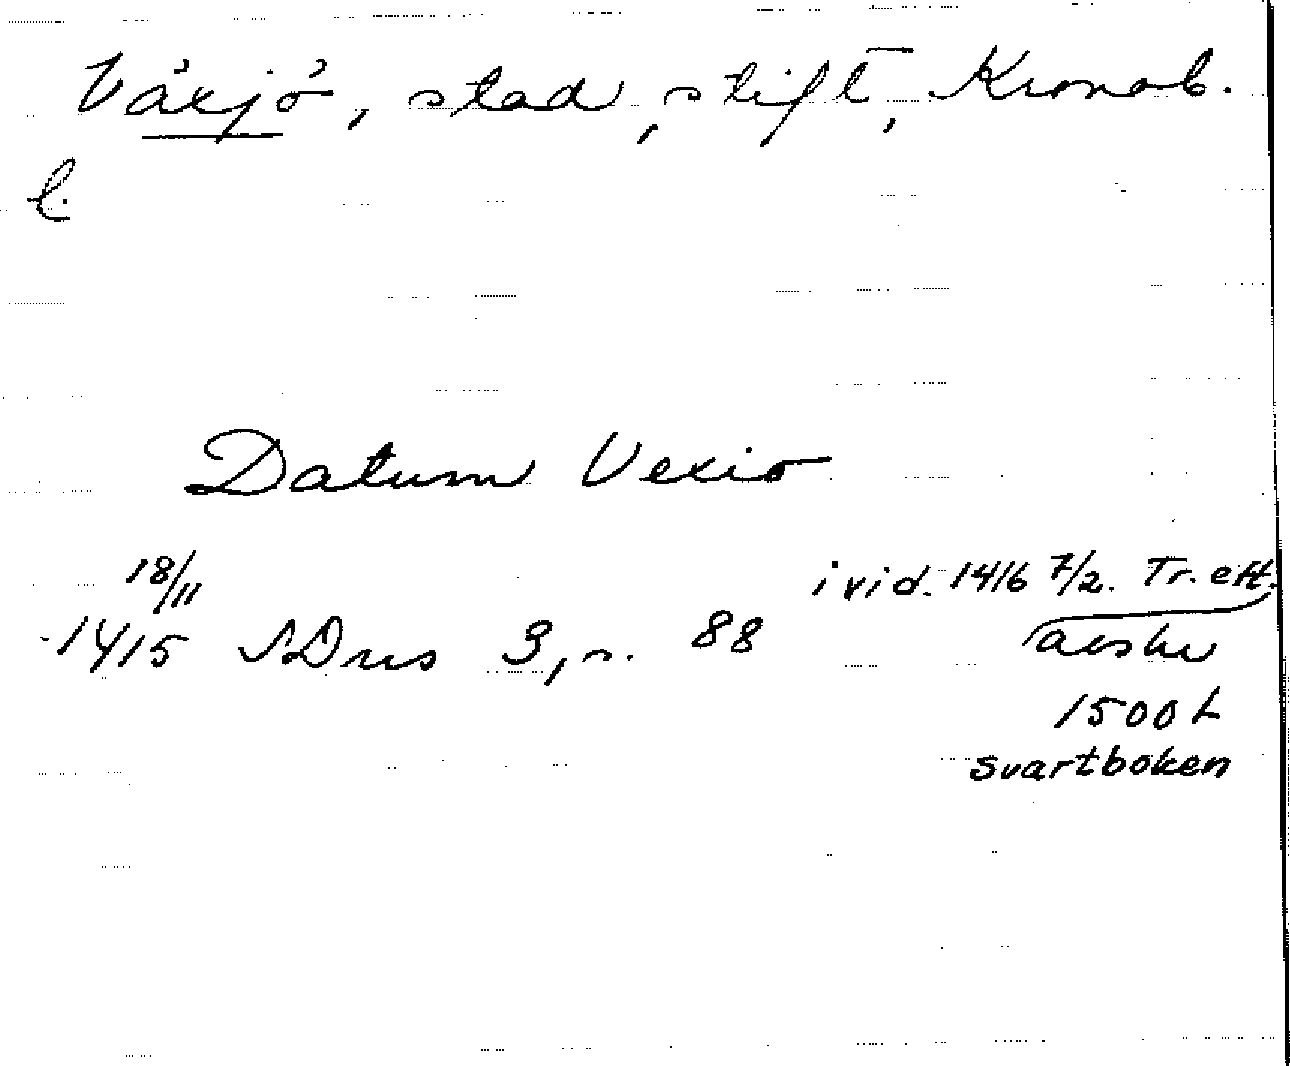 Växjö, stad, stift, Kronob.
l.
Datum Vexio
18/11
1415 SDns 3, s. 88
i vid. 1416 7/2. Tr. eft.
avskr
1500 t
svartboken